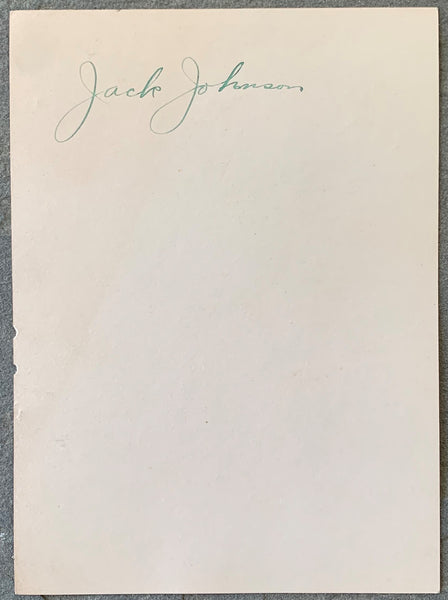 Jack Johnson